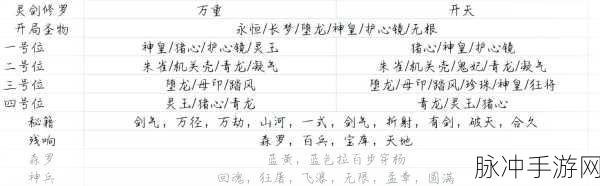 灵剑修罗 万重 开天
开局圣物 永恒/长梦/堕龙/神皇/护心镜/无根
一号位 神皇/猪心/护心镜/灵玉 猪心/神皇/护心镜
二号位 朱雀/机关壳/青龙/凝气 朱雀/机关壳/鬼妃/青龙/凝气
三号位 堕龙/母印/踏风 堕龙/母印/踏风/珍珠/神皇/狂将
四号位 灵玉/猪心/青龙 青龙/灵玉/猪心
秘籍 剑气，万径，万劫，山河，一式，剑气，折射，有剑，破天，合久
残响 森罗，百兵，宝库，天地
森罗 蓝黄，蓝色拉百步穿杨
神兵 回魂，狂屠，飞瀑，无限，孟章，圆满
脉冲手游网